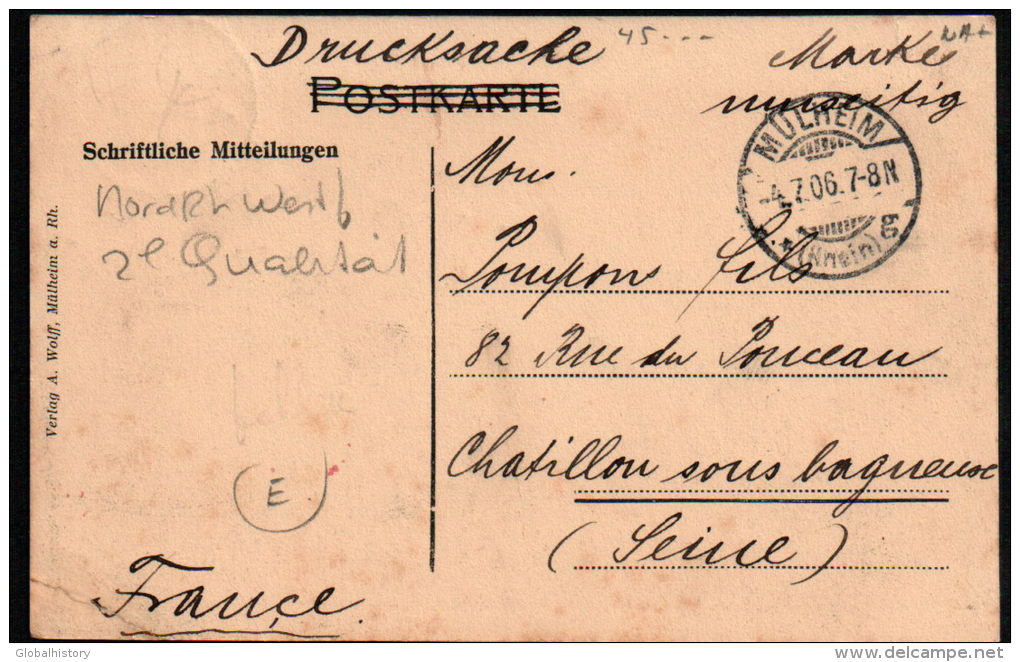 Drucksache
45---
Marke
umseitig
POSTKARTE
Schriftliche Mitteilungen
MÜLHEIM
-4.7.06.7-8N
(Rhein)
Mons.
Pompon fils
82 Rue du Ponceau
Chatillon sous bagneux
(Seine)
France
NordRh Westf
2e Qualität
E
Verlag A. Wolff, Mülheim a. Rh.
Globalhistory
delcampe.net